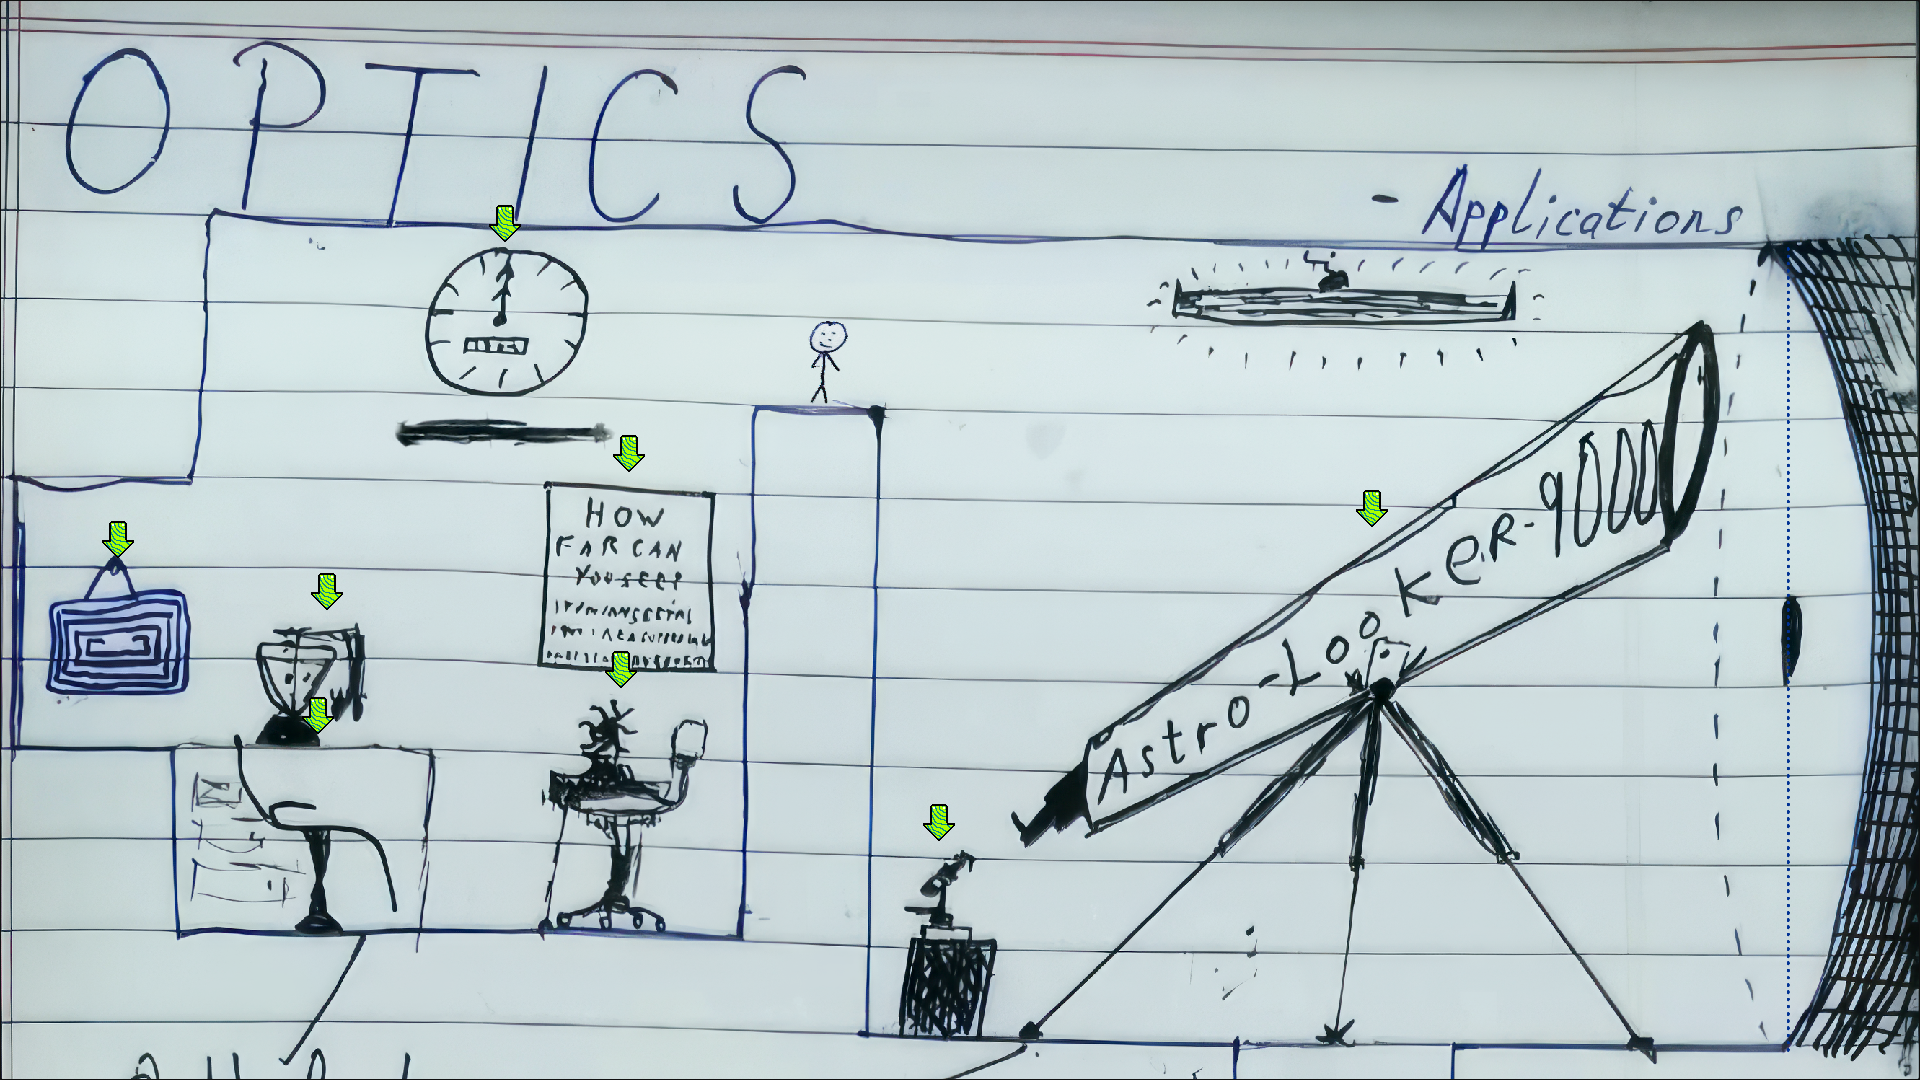 OPTICS
- Applications
HOW
FAR CAN
YOU SEE?
Astro-LooKeR-9000